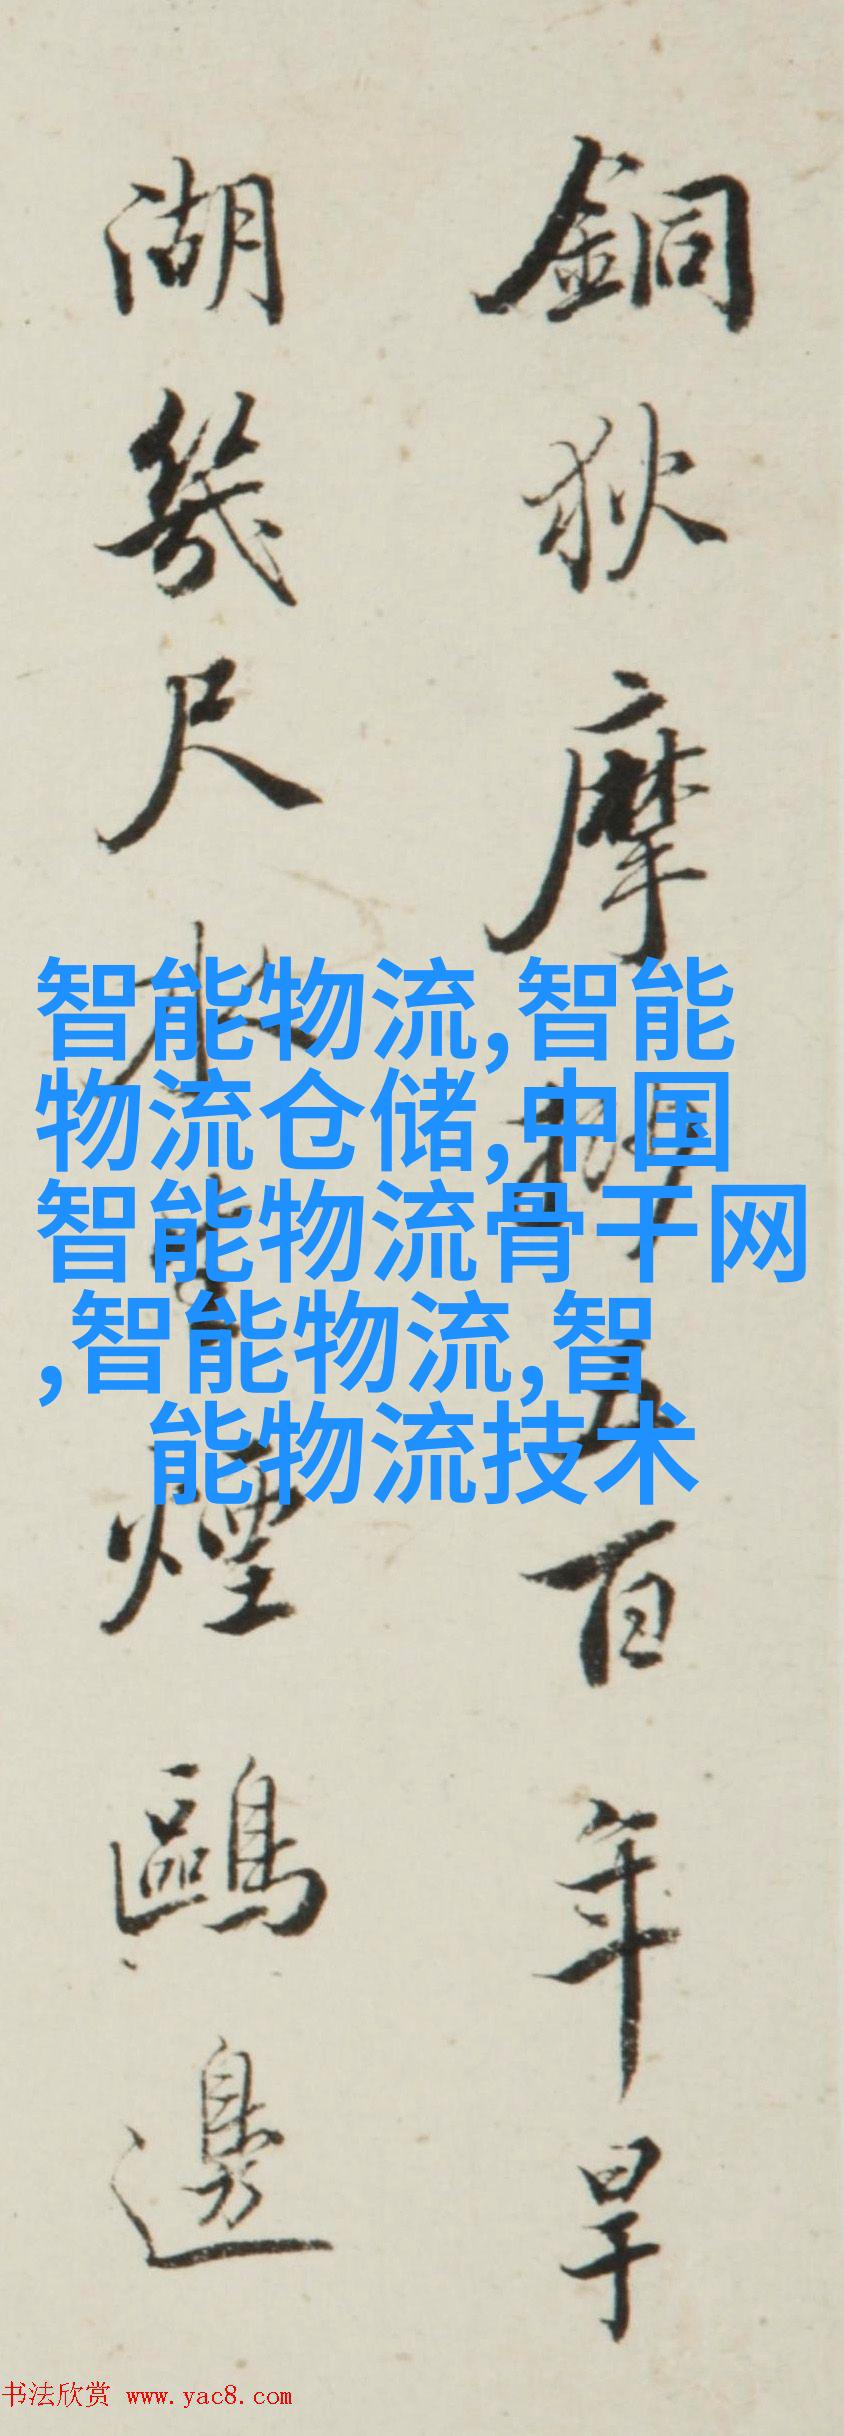 銅狄摩五百年旱
湖幾尺水煙鷗邊
智能物流,智能
物流仓储,中国
智能物流骨干网
,智能物流,智
能物流技术
书法欣赏 www.yac8.com